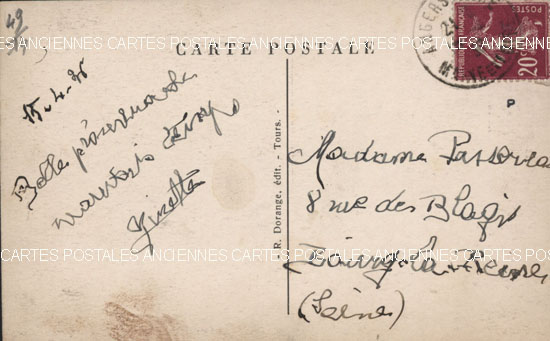 49
CARTE POSTALE
15-4-35
Belle promenade
mauvais temps
Ginette
R. Dorange, édit. - Tours. -
ANGERS
POSTES
20c
P
Madame Passereau
8 rue des Blagis
Bourg-la-Reine
(Seine)
CARTES POSTALES ANCIENNES CARTES POSTALES ANCIENNES CARTES POSTALES ANCIENNES
CARTES POSTALES ANCIENNES CARTES POSTALES ANCIENNES CARTES POSTALES ANCIENNES